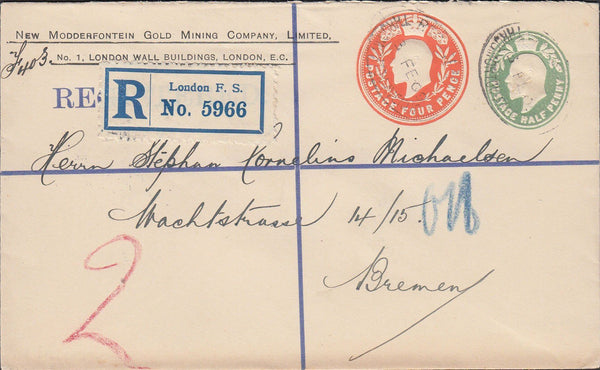 New Modderfontein Gold Mining Company, Limited,
No. 1, LONDON WALL BUILDINGS, LONDON, E.C.
F403
RE
R
London F. S.
No. 5966
POSTAGE FOUR PENCE
POSTAGE HALF PENNY
Herrn Stéphan Kornelius Michaelsen
Wachtstrasse 14/15.
Bremen
2